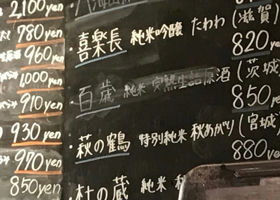 2,100yen
780yen
960yen
1000yen
910yen
930yen
970yen
850yen
喜楽長 純米吟醸 たわわ (滋賀
820
百歳 純米 原酒 (茨城
850
萩の鶴 特別純米 秋あがり (宮城
880yen
杜の蔵 純米